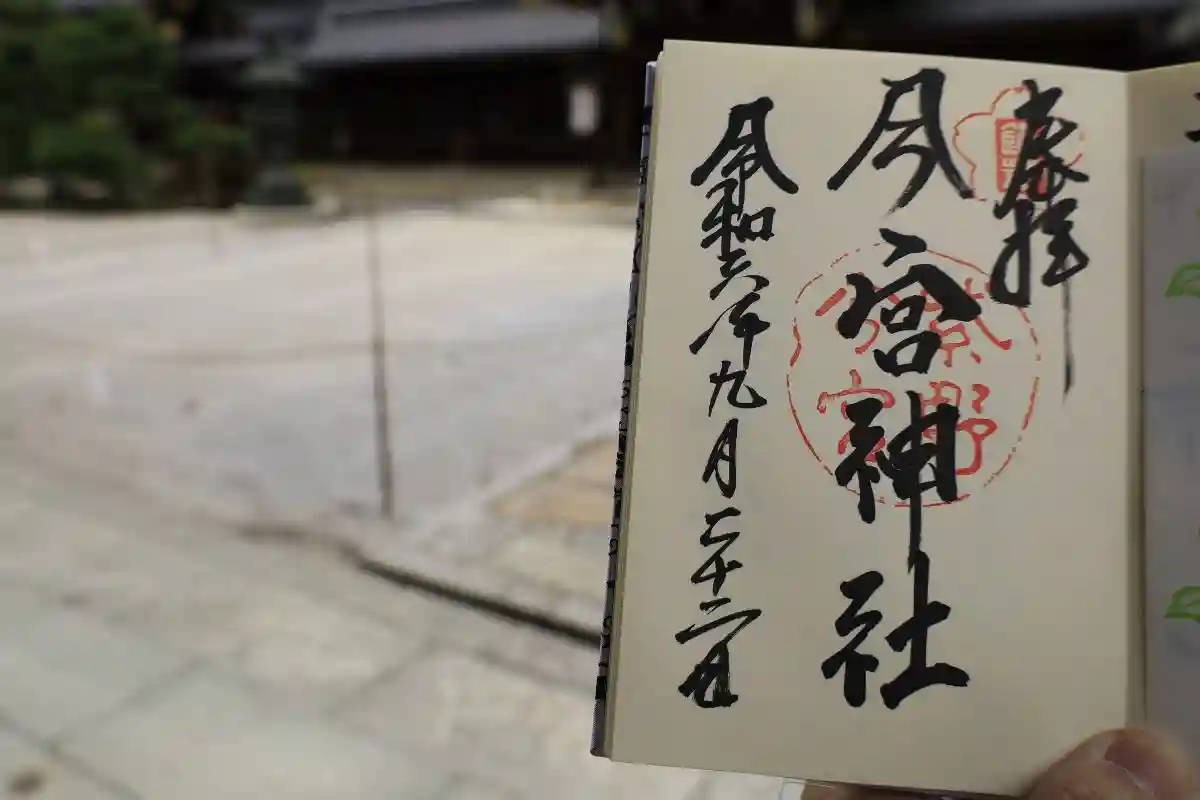 奉拝
今宮神社
令和六年九月二十二日
紫野
今宮